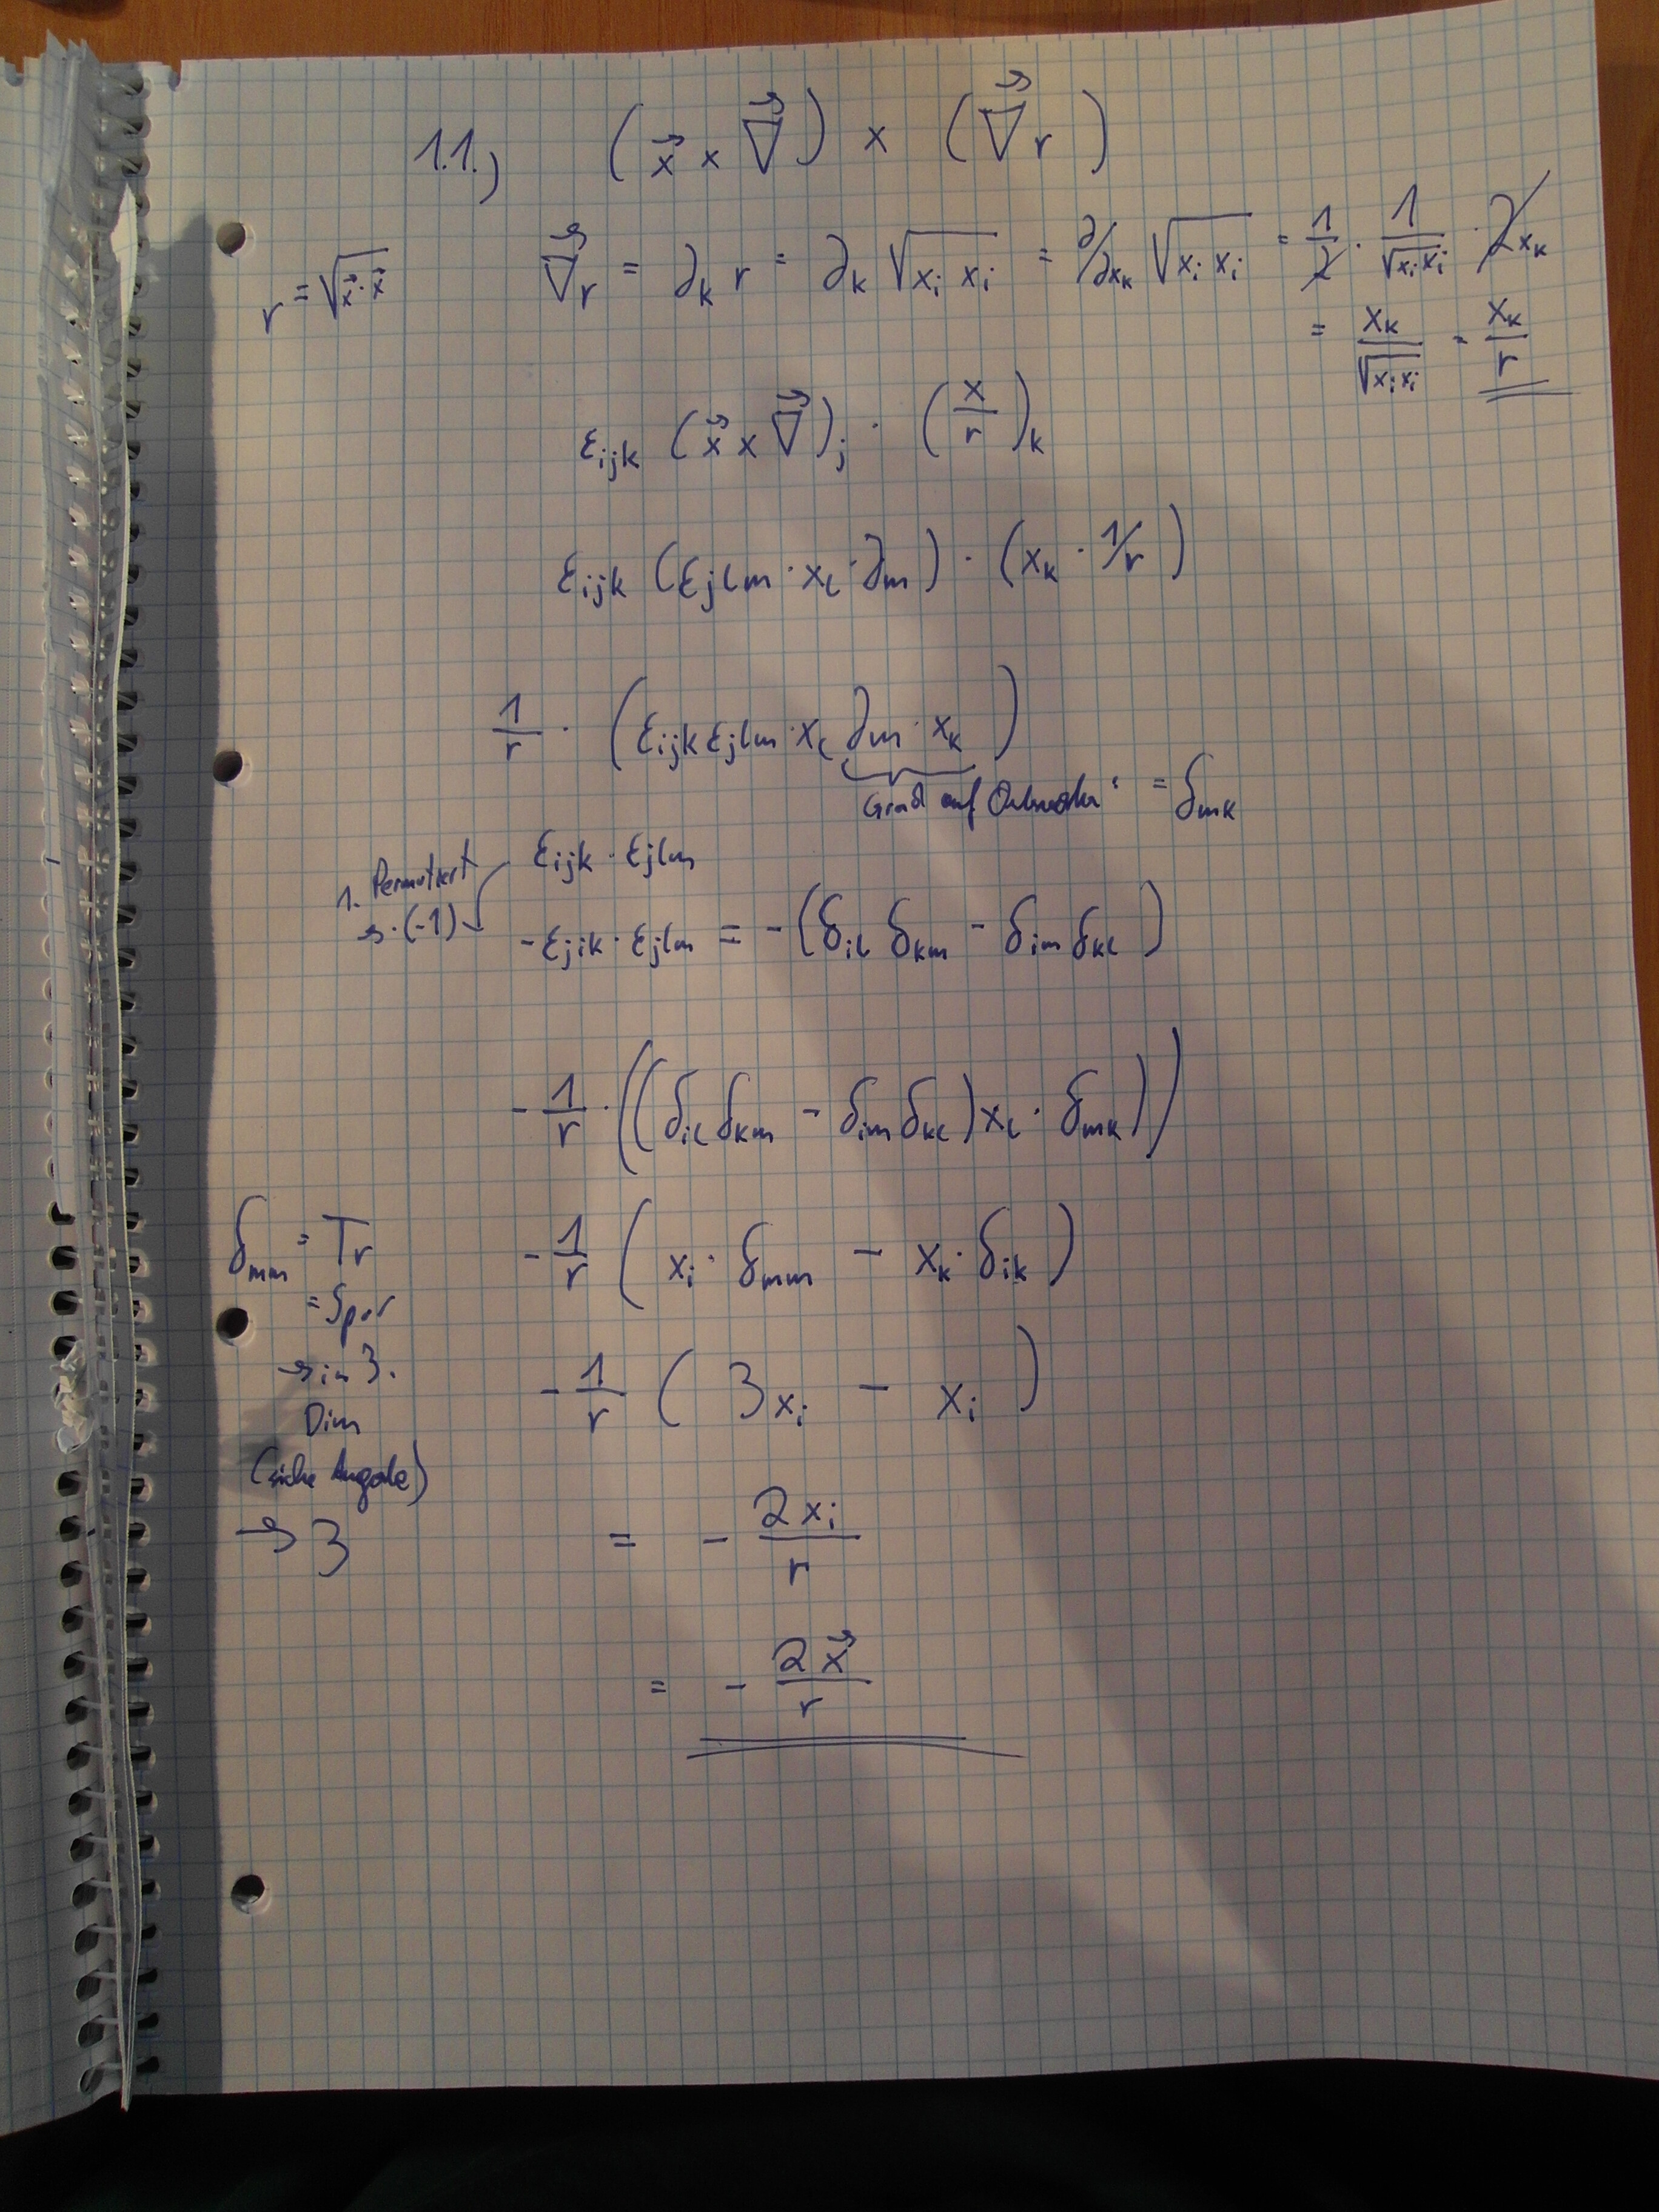 1.1.) (x⃗ × ∇⃗) × (∇⃗ r)
r = √(x⃗·x⃗)
∇⃗r = ∂ₖ r = ∂ₖ √(xᵢ xᵢ) = ∂/∂xₖ √(xᵢ xᵢ) = 1/2 · 1/√(xᵢxᵢ) · 2xₖ
= xₖ/√(xᵢxᵢ) = xₖ/r
ε_ijk (x⃗ × ∇⃗)_j · (x/r)_k
ε_ijk (ε_jlm · x_l · ∂_m) · (x_k · 1/r)
1/r · (ε_ijk ε_jlm · x_l ∂_m · x_k)
Grad auf Ortsvektor : = δ_mk
ε_ijk · ε_jlm
1. Permutiert
→ ·(-1)
-ε_jik · ε_jlm = -(δ_il δ_km - δ_im δ_kl)
- 1/r · ((δ_il δ_km - δ_im δ_kl) x_l · δ_mk)
δ_mm = Tr
= Spur
→ in 3.
Dim
(siehe Angabe)
→ 3
- 1/r (x_i · δ_mm - x_k · δ_ik)
- 1/r (3x_i - x_i)
= - 2x_i/r
= - 2x⃗/r